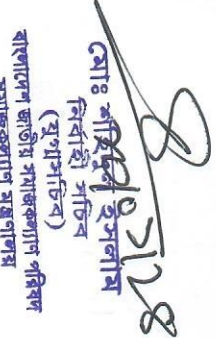 মোঃ শহীদুল ইসলাম
নির্বাহী সচিব
(যুগ্মসচিব)
বাংলাদেশ জাতীয় সমাজকল্যাণ পরিষদ
সমাজকল্যাণ মন্ত্রণালয়